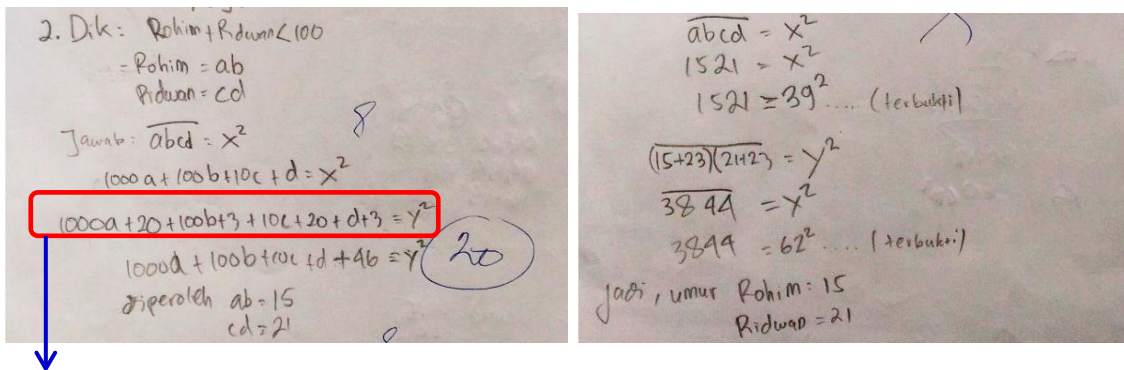 2. Dik: Rohim+Ridwan<100
= Rohim = ab
Ridwan = cd
8
Jawab: abcd = x²
1000a+100b+10c+d=x²
1000a+20+100b+3+10c+20+d+3 = y²
1000a+100b+10c+d+46 = y²
20
diperoleh ab=15
cd=21
abcd = x²
1521 = x²
1521 = 39² .... (terbukti)
(15+23)(21+23 = y²
3844 = y²
3844 = 62² .... (terbukti)
Jadi, umur Rohim: 15
Ridwan = 21